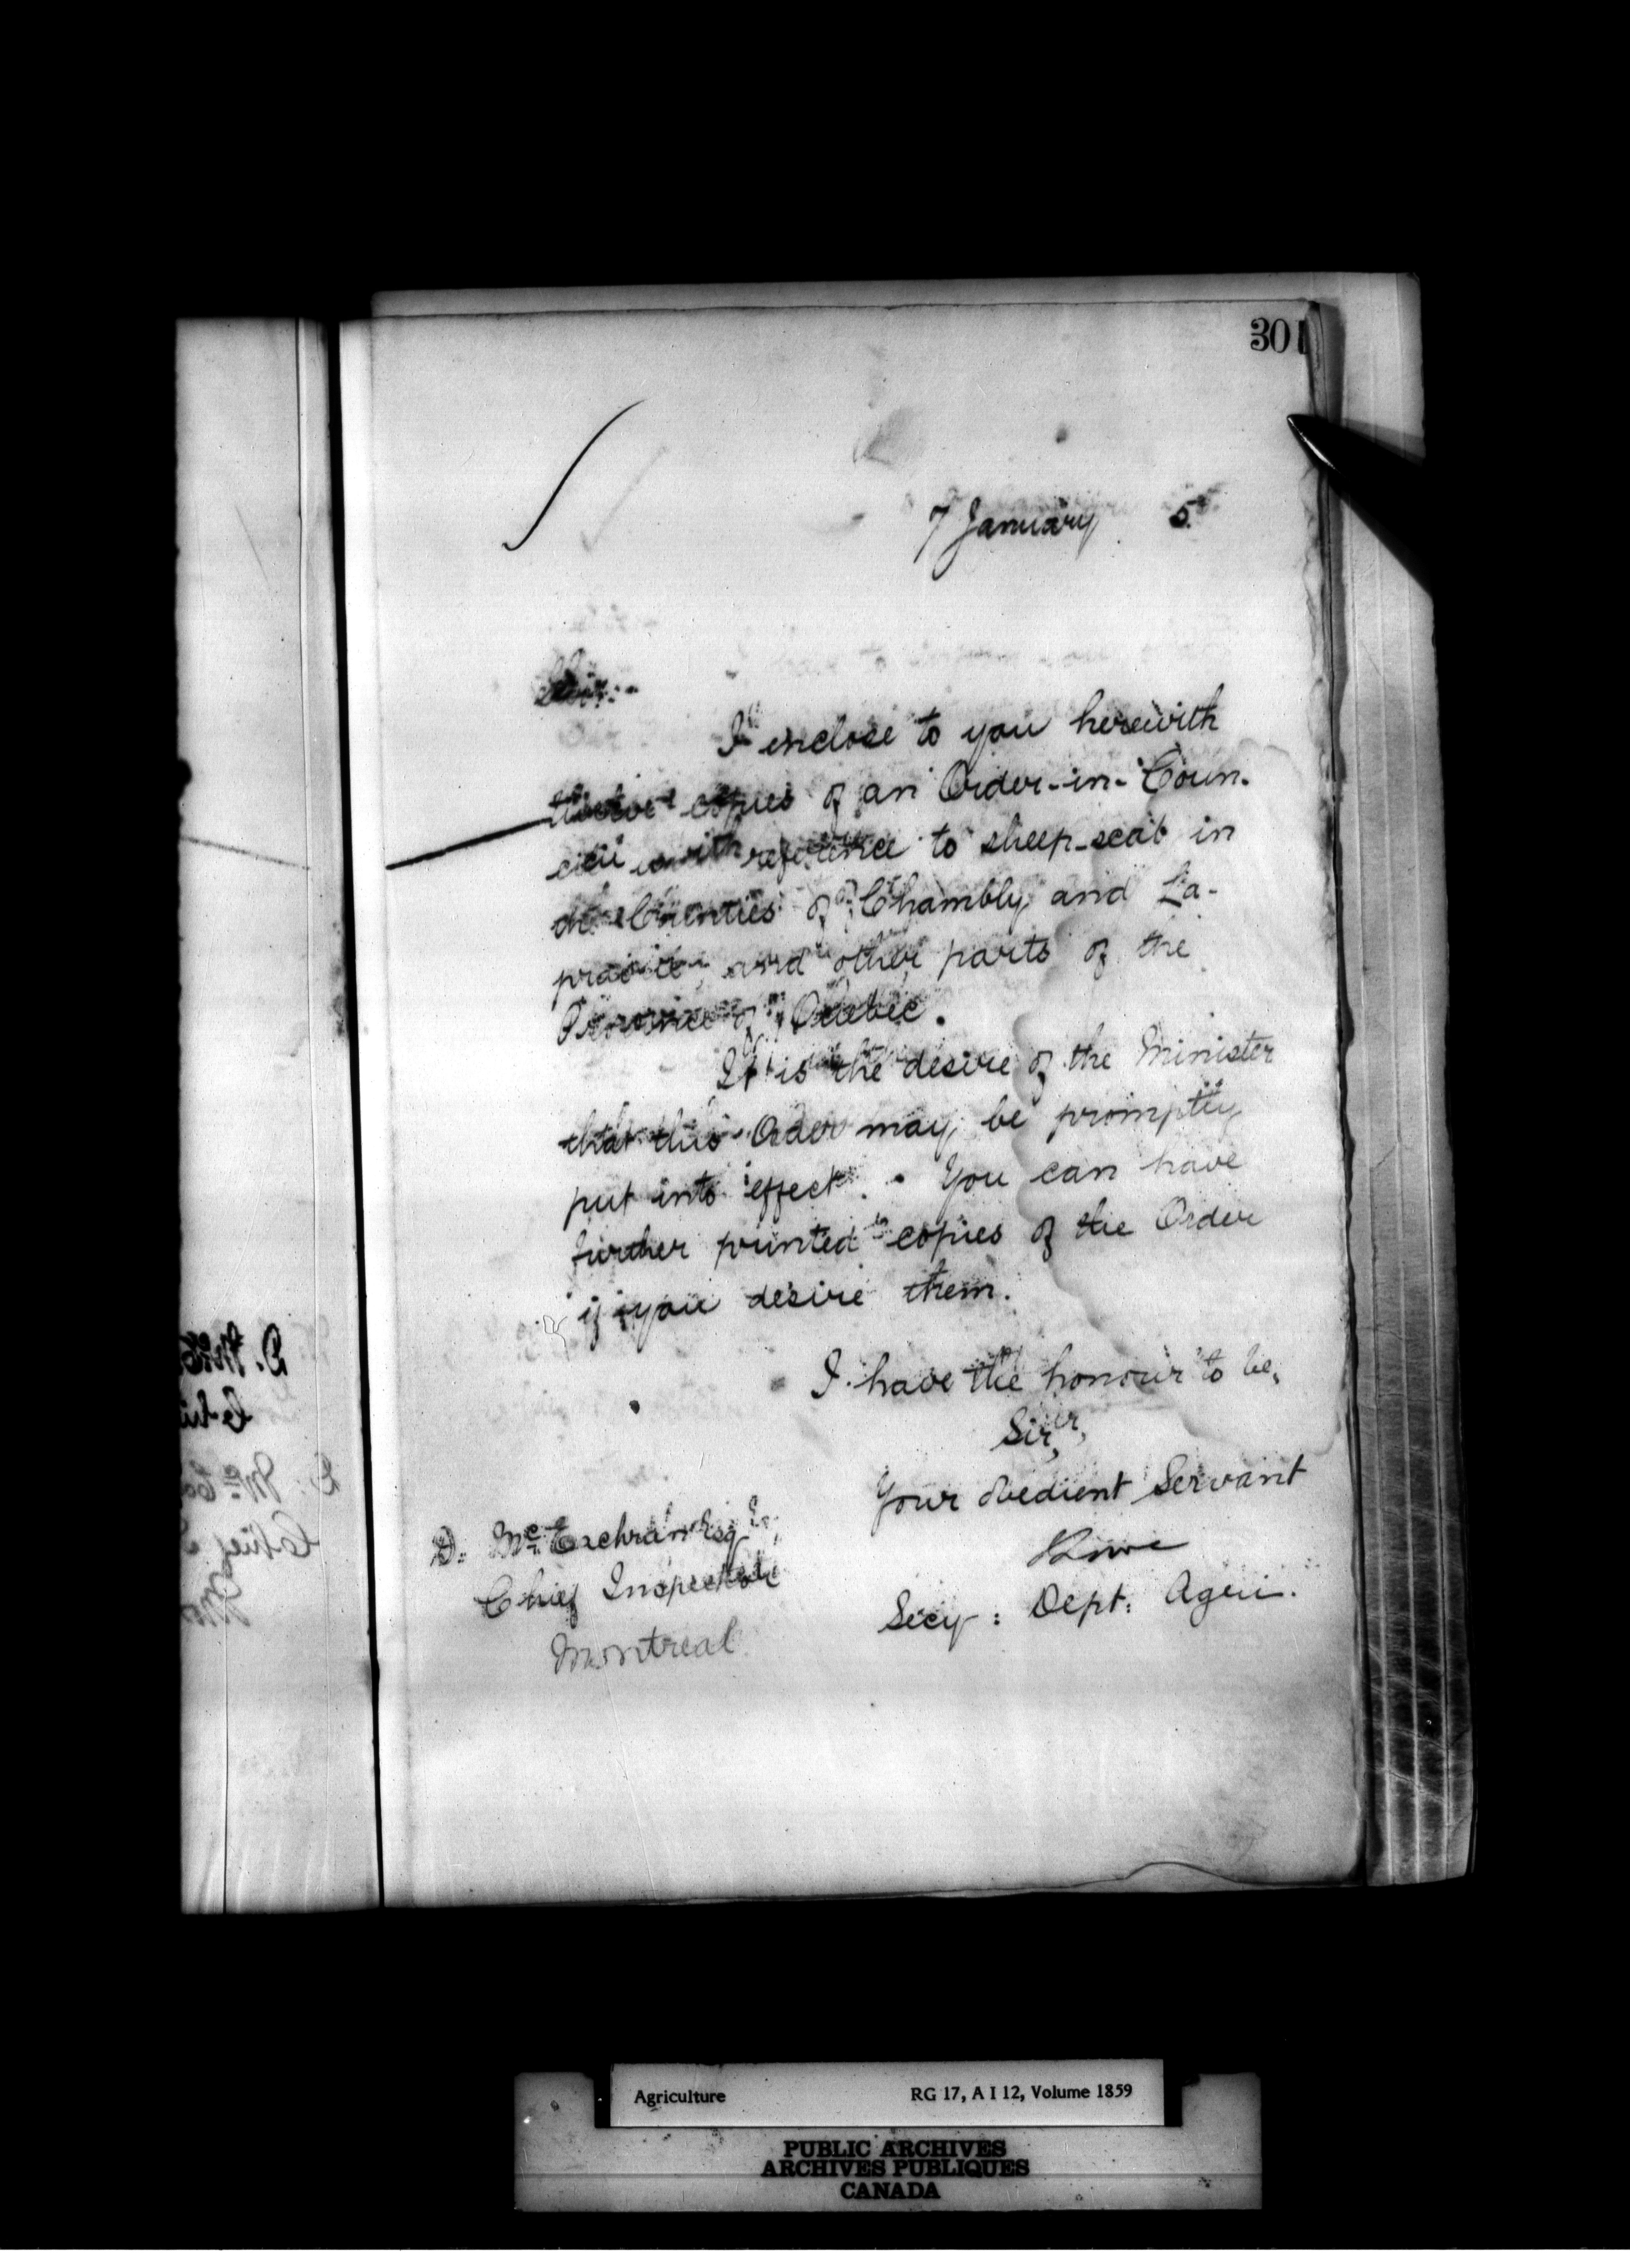 301
7 January 5.
Sir:-
I enclose to you herewith
twelve copies of an Order-in-Coun-
cil with reference to sheep-scab in
the Counties of Chambly and La-
prairie, and other parts of the
Province of Quebec.
It is the desire of the Minister
that this Order may be promptly
put into effect. You can have
further printed copies of the Order
if you desire them.
I have the honour to be,
Sir,
Your obedient Servant
D. McEachran Esq
Chief Inspector
Montreal
Secy: Dept: Agri.
Agriculture RG 17, A I 12, Volume 1859
PUBLIC ARCHIVES
ARCHIVES PUBLIQUES
CANADA